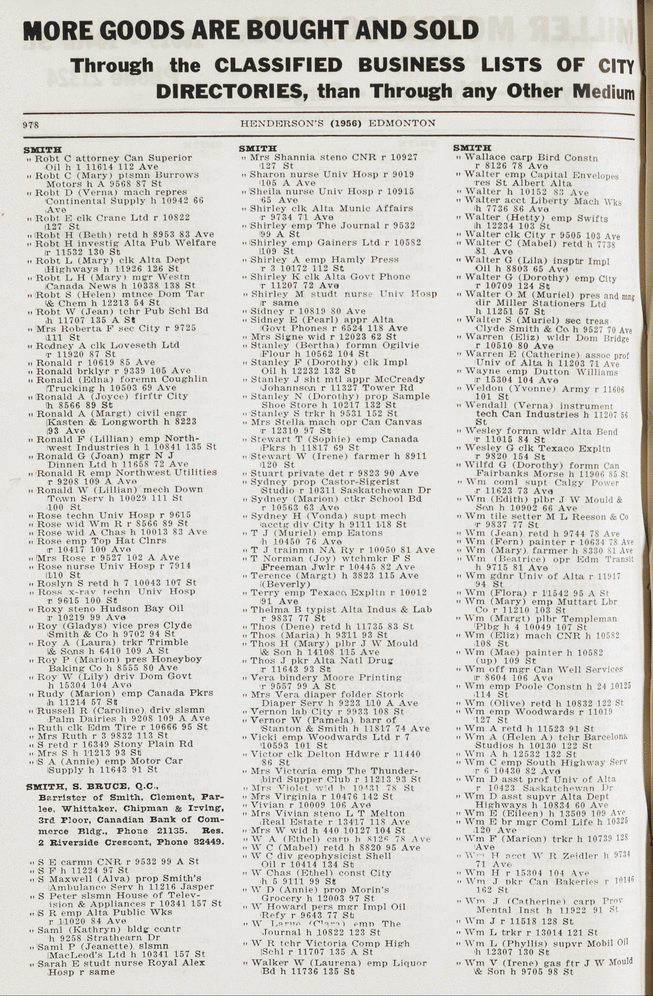 MORE GOODS ARE BOUGHT AND SOLD
Through the CLASSIFIED BUSINESS LISTS OF CITY
DIRECTORIES, than Through any Other Medium
978
HENDERSON'S (1956) EDMONTON
SMITH
" Robt C attorney Can Superior
Oil h 1 11614 112 Ave
" Robt C (Mary) ptsmn Burrows
Motors h A 9568 87 St
" Robt D (Verna) mach repres
Continental Supply h 10942 66
Ave
" Robt E clk Crane Ltd r 10822
127 St
" Robt H (Beth) retd h 8953 83 Ave
" Robt H investig Alta Pub Welfare
r 11532 130 St
" Robt L (Mary) clk Alta Dept
Highways h 11926 126 St
" Robt L H (Mary) mgr Westn
Canada News h 10338 138 St
" Robt S (Helen) mtnce Dom Tar
& Chem h 12213 54 St
" Robt W (Jean) tchr Pub Schl Bd
h 11707 135 A St
" Mrs Roberta F sec City r 9725
111 St
" Rodney A clk Loveseth Ltd
r 11920 87 St
" Ronald r 10619 85 Ave
" Ronald brklyr r 9339 105 Ave
" Ronald (Edna) foremn Coughlin
Trucking h 10503 69 Ave
" Ronald A (Joyce) firftr City
h 8566 89 St
" Ronald A (Margt) civil engr
Kasten & Longworth h 8223
93 Ave
" Ronald F (Lillian) emp North-
west Industries h 1 10841 135 St
" Ronald G (Joan) mgr N J
Dinnen Ltd h 11658 72 Ave
" Ronald R emp Northwest Utilities
r 9208 109 A Ave
" Ronald W (Lillian) mech Down
Town Serv h 10029 111 St
100 St
" Rose techn Univ Hosp r 9615
" Rose wid Wm R r 8566 89 St
" Rose wid A Chas h 10013 83 Ave
" Rose emp Top Hat Clnrs
r 10417 100 Ave
" Mrs Rose r 9527 102 A Ave
" Rose nurse Univ Hosp r 7914
110 St
" Roslyn S retd h 7 10043 107 St
" Ross x-ray techn Univ Hosp
r 9615 100 St
" Roxy steno Hudson Bay Oil
r 10219 99 Ave
" Roy (Gladys) vice pres Clyde
Smith & Co h 9702 94 St
" Roy A (Laura) trkr Trimble
& Sons h 6410 109 A St
" Roy P (Marion) pres Honeyboy
Baking Co h 8555 80 Ave
" Roy W (Lily) driv Dom Govt
h 15304 104 Ave
" Rudy (Marion) emp Canada Pkrs
h 11214 57 St
" Russell R (Caroline) driv slsmn
Palm Dairies h 9208 109 A Ave
" Ruth clk Edm Tire r 10666 95 St
" Mrs Ruth r 3 9832 113 St
" S retd r 16349 Stony Plain Rd
" Mrs S h 11213 93 St
" S A (Annie) emp Motor Car
Supply h 11643 91 St
SMITH, S. BRUCE, Q.C.,
Barrister of Smith, Clement, Par-
lee, Whittaker, Chipman & Irving,
3rd Floor, Canadian Bank of Com-
merce Bldg., Phone 21135. Res.
2 Riverside Crescent, Phone 82449.
" S E carmn CNR r 9532 99 A St
" S F h 11224 97 St
" S Maxwell (Alva) prop Smith's
Ambulance Serv h 11216 Jasper
" S Peter slsmn House of Telev-
ision & Appliances r 10341 157 St
" S R emp Alta Public Wks
r 11020 84 Ave
" Saml (Kathryn) bldg contr
h 9258 Strathearn Dr
" Saml P (Jeanette) slsmn
MacLeod's Ltd h 10341 157 St
" Sarah E studt nurse Royal Alex
Hosp r same
SMITH
" Mrs Shannia steno CNR r 10927
127 St
" Sharon nurse Univ Hosp r 9019
105 A Ave
" Sheila nurse Univ Hosp r 10915
65 Ave
" Shirley clk Alta Munic Affairs
r 9734 71 Ave
" Shirley emp The Journal r 9532
99 A St
" Shirley emp Gainers Ltd r 10582
109 St
" Shirley A emp Hamly Press
r 3 10172 112 St
" Shirley K clk Alta Govt Phone
r 11207 72 Ave
" Shirley M studt nurse Univ Hosp
r same
" Sidney r 10819 80 Ave
" Sidney E (Pearl) appr Alta
Govt Phones r 6524 118 Ave
" Mrs Signe wid r 12023 62 St
" Stanley (Bertha) formn Ogilvie
Flour h 10562 104 St
" Stanley F (Dorothy) clk Impl
Oil h 12232 132 St
" Stanley J sht mtl appr McCready
Johannson r 11327 Tower Rd
" Stanley N (Dorothy) prop Sample
Shoe Store h 10217 132 St
" Stanley S trkr h 9531 152 St
" Mrs Stella mach opr Can Canvas
r 12310 97 St
" Stewart T (Sophie) emp Canada
Pkrs h 11817 69 St
" Stewart W (Irene) farmer h 8911
120 St
" Stuart private det r 9823 90 Ave
" Sydney prop Castor-Sigerist
Studio r 10311 Saskatchewan Dr
" Sydney (Marion) ctkr School Bd
r 10563 63 Ave
" Sydney H (Vonda) supt mech
acctg div City h 9111 118 St
" T J (Muriel) emp Eatons
h 10450 76 Ave
" T J trainmn NA Ry r 10050 81 Ave
" T Norman (Joy) wtchmkr F S
Freeman Jwlr r 10445 82 Ave
" Terence (Margt) h 3823 115 Ave
(Beverly)
" Terry emp Texaco Expltn r 10012
91 Ave
" Thelma B typist Alta Indus & Lab
r 9837 77 St
" Thos (Dene) retd h 11735 83 St
" Thos (Maria) h 9311 93 St
" Thos H (Mary) plbr J W Mould
& Son h 14108 115 Ave
" Thos J pkr Alta Natl Drug
r 11643 93 St
" Vera bindery Moore Printing
r 9557 99 A St
" Mrs Vera diaper folder Stork
Diaper Serv h 9223 110 A Ave
" Vernon lab City r 9933 108 St
" Vernor W (Pamela) barr of
Stanton & Smith h 11817 74 Ave
" Vicki emp Woodwards Ltd r 7
10593 101 St
" Victor clk Delton Hdwre r 11440
86 St
" Mrs Victoria emp The Thunder-
bird Supper Club r 11213 93 St
" Mrs Violet wid h 10431 78 St
" Mrs Virginia r 10476 142 St
" Vivian r 10009 106 Ave
" Mrs Vivian steno L T Melton
Real Estate r 13417 118 Ave
" Mrs W wid h 440 10127 104 St
" W A (Ethel) carp h 8126 78 Ave
" W C (Mabel) retd h 8820 95 Ave
" W C div geophysicist Shell
Oil r 10414 134 St
" W Chas (Ethel) const City
h 5 9111 99 St
" W D (Annie) prop Morin's
Grocery h 12003 97 St
" W Howard pers mgr Impl Oil
Refy r 9643 77 St
" W emp The
Journal h 10822 123 St
" W R tchr Victoria Comp High
Schl r 11707 135 A St
" Walker W (Laurena) emp Liquor
Bd h 11736 135 St
SMITH
" Wallace carp Bird Constn
r 8126 78 Ave
" Walter emp Capital Envelopes
res St Albert Alta
" Walter h 10152 83 Ave
" Walter acct Liberty Mach Wks
h 7736 86 Ave
" Walter (Hetty) emp Swifts
h 12234 103 St
" Walter clk City r 9505 103 Ave
" Walter C (Mabel) retd h 7738
81 Ave
" Walter G (Lila) insptr Impl
Oil h 8803 65 Ave
" Walter G (Dorothy) emp City
r 10709 124 St
" Walter O M (Muriel) pres and mng
dir Miller Stationers Ltd
h 11251 57 St
" Walter S (Muriel) sec treas
Clyde Smith & Co h 9527 70 Ave
" Warren (Eliz) wldr Dom Bridge
r 10510 80 Ave
" Warren E (Catherine) assoc prof
Univ of Alta h 11203 71 Ave
" Wayne emp Dutton Williams
r 15304 104 Ave
" Weldon (Yvonne) Army r 11606
101 St
" Wendall (Verna) instrument
tech Can Industries h 11207 56
St
" Wesley formn wldr Alta Bend
r 11015 84 St
" Wesley G clk Texaco Expltn
r 9820 154 St
" Wilfd G (Dorothy) formn Can
Fairbanks Morse h 11906 85 St
" Wm coml supt Calgy Power
r 11623 73 Ave
" Wm (Edith) plbr J W Mould &
Son h 10902 66 Ave
" Wm tile setter M L Reeson & Co
r 9837 77 St
" Wm (Jean) retd h 9744 78 Ave
" Wm (Fern) painter r 10634 78 Ave
" Wm (Mary) farmer h 8330 81 Ave
" Wm (Beatrice) opr Edm Transit
h 9715 81 Ave
" Wm gdnr Univ of Alta r 11917
94 St
" Wm (Flora) r 11542 95 A St
" Wm (Mary) emp Muttart Lbr
Co r 11210 103 St
" Wm (Margt) plbr Templeman
Plbr h 4 10049 107 St
" Wm (Eliz) mach CNR h 10582
108 St
" Wm (Mae) painter h 10582
(up) 109 St
" Wm off mgr Can Well Services
r 8604 106 Ave
" Wm emp Poole Constn h 24 10125
114 St
" Wm (Olive) retd h 10832 122 St
" Wm emp Woodwards r 11019
127 St
" Wm A retd h 11523 91 St
" Wm A (Helen A) tchr Barcelona
Studios h 10130 122 St
" Wm A h 12532 132 St
" Wm C emp South Highway Serv
r 6 10430 82 Ave
" Wm D asst prof Univ of Alta
r 10423 Saskatchewan Dr
" Wm D asst supvr Alta Dept
Highways h 10834 60 Ave
" Wm E (Eileen) h 13509 109 Ave
" Wm E br mgr Coml Life h 10325
120 Ave
" Wm F (Marion) trkr h 10739 128
Ave
" Wm H acct W R Zeidler h 9734
71 Ave
" Wm H r 15304 104 Ave
" Wm J pkr Can Bakeries r 10146
162 St
" Wm J (Catherine) carp Prov
Mental Inst h 11922 91 St
" Wm J r 11518 128 St
" Wm L trkr r 13014 121 St
" Wm L (Phyllis) supvr Mobil Oil
h 12307 130 St
" Wm V (Irene) gas ftr J W Mould
& Son h 9705 98 St